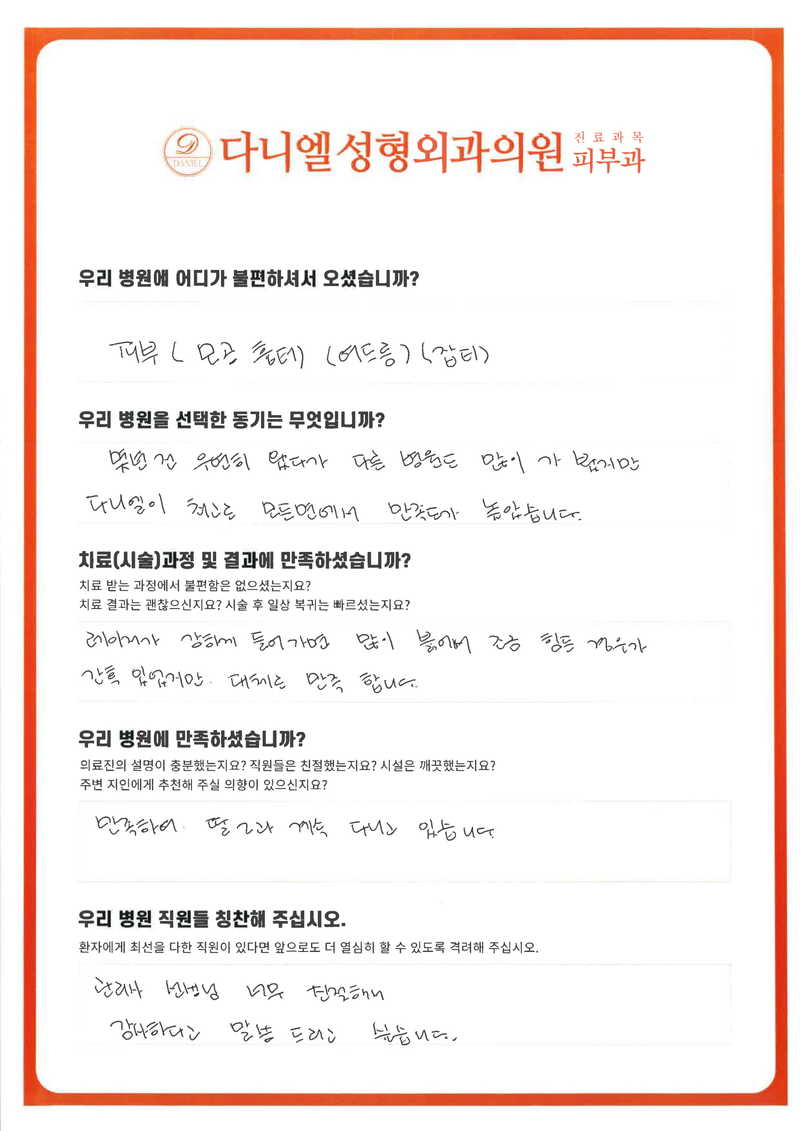 DANIEL 다니엘성형외과의원 진료과목 피부과
우리 병원에 어디가 불편하셔서 오셨습니까?
피부 ( 모공 흉터) (여드름) (잡티)
우리 병원을 선택한 동기는 무엇입니까?
몇년 전 우연히 왔다가 다른 병원도 많이 가 봤지만
다니엘이 최고로 모든면에서 만족도가 높았습니다.
치료(시술)과정 및 결과에 만족하셨습니까?
치료 받는 과정에서 불편함은 없으셨는지요?
치료 결과는 괜찮으신지요? 시술 후 일상 복귀는 빠르셨는지요?
레이저가 강하게 들어가면 많이 붉어져 조금 힘든 경우가
간혹 있었지만. 대체로 만족 합니다.
우리 병원에 만족하셨습니까?
의료진의 설명이 충분했는지요? 직원들은 친절했는지요? 시설은 깨끗했는지요?
주변 지인에게 추천해 주실 의향이 있으신지요?
만족하여. 딸 계속 다니고 있습니다.
우리 병원 직원들 칭찬해 주십시오.
환자에게 최선을 다한 직원이 있다면 앞으로도 더 열심히 할 수 있도록 격려해 주십시오.
관리사 선생님 너무 친절해서
감사하다고 말씀 드리고 싶습니다.